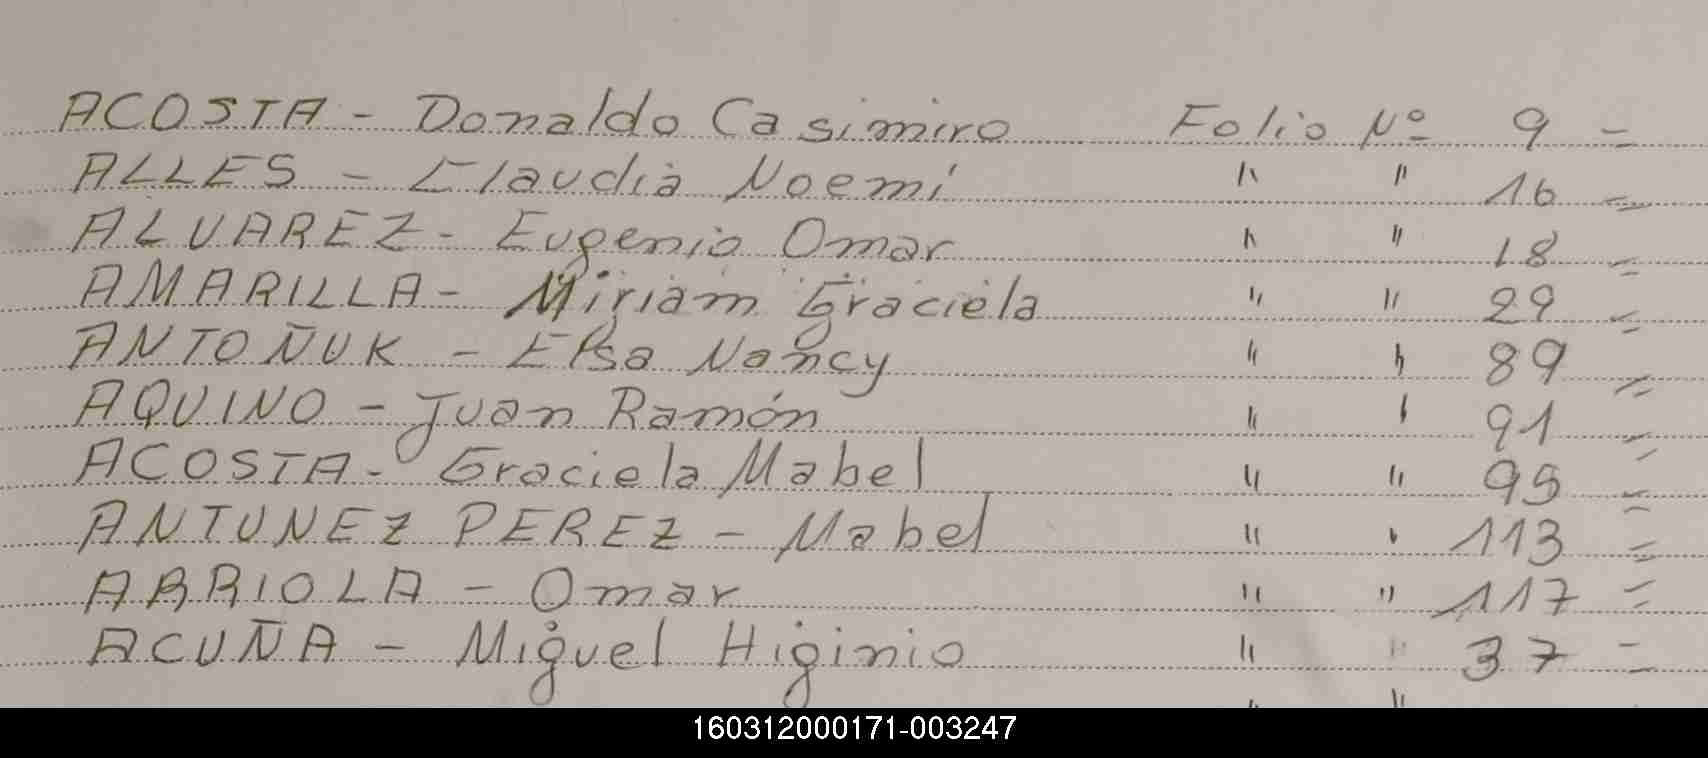 ACOSTA - Donaldo Casimiro Folio Nº 9 =
ALLES - Claudia Noemí " " 16 =
ALVAREZ - Eugenio Omar " " 18 =
AMARILLA - Miriam Graciela " " 29 =
ANTOÑUK - Elsa Nancy " " 89 =
AQUINO - Juan Ramón " " 91 =
ACOSTA - Graciela Mabel " " 95 =
ANTUNEZ PEREZ - Mabel " " 113 =
ARRIOLA - Omar " " 117 =
ACUÑA - Miguel Higinio " " 37 =
" "
160312000171-003247